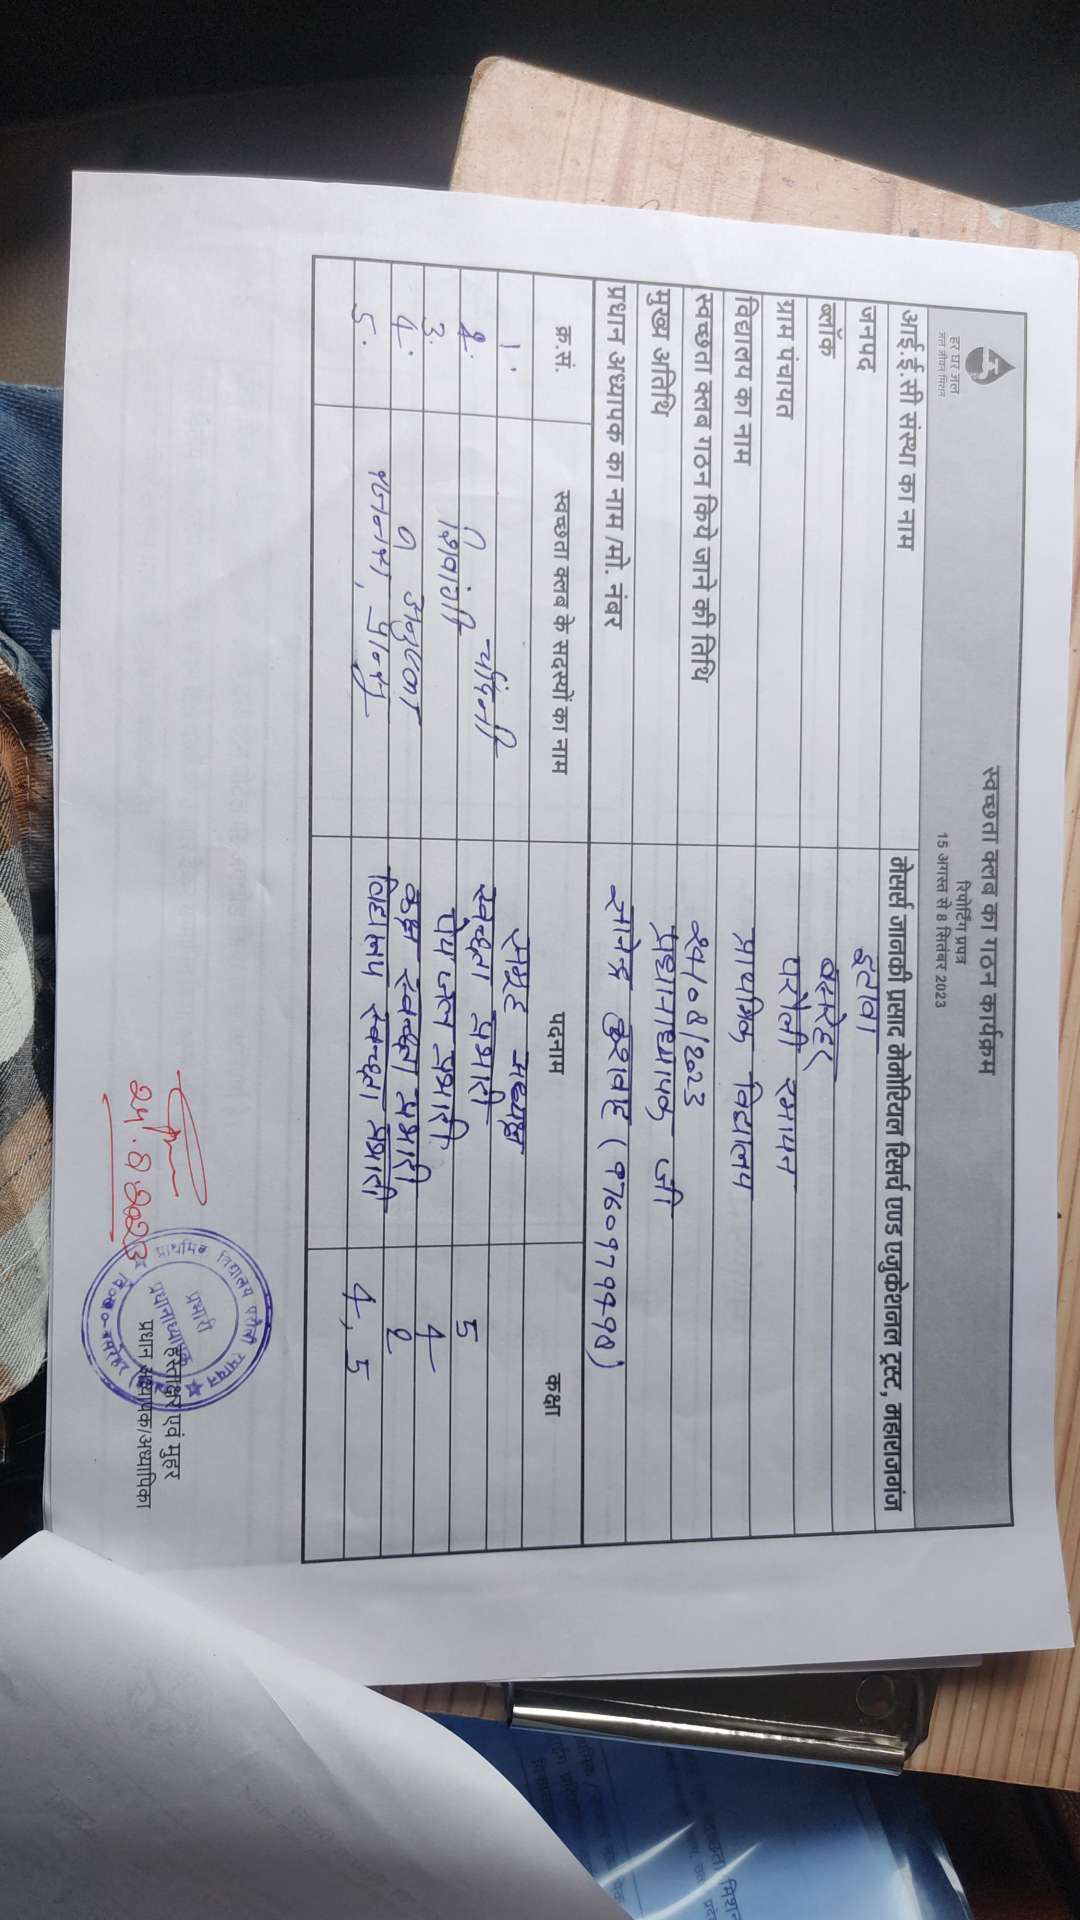 हर घर जल
जल जीवन मिशन
स्वच्छता क्लब का गठन कार्यक्रम
रिपोर्टिंग प्रपत्र
15 अगस्त से 8 सितंबर 2023
आई.ई.सी संस्था का नाम मेसर्स जानकी प्रसाद मेमोरियल रिसर्च एण्ड एजुकेशनल ट्रस्ट, महाराजगंज
जनपद इटावा
ब्लॉक बसरेहर
ग्राम पंचायत परौली रमायन
विद्यालय का नाम प्राथमिक विद्यालय
स्वच्छता क्लब गठन किये जाने की तिथि २५/०८/२०२३
मुख्य अतिथि प्रधानाध्यापक जी
प्रधान अध्यापक का नाम /मो. नंबर कुशवाह
क्र.सं. स्वच्छता क्लब के सदस्यों का नाम पदनाम कक्षा
1. चाँदनी समूह अध्यक्ष 5
2. शिवांगी स्वच्छता प्रभारी 4
3. पेय जल प्रभारी 2
4. कक्षा स्वच्छता प्रभारी
5. विद्यालय स्वच्छता प्रभारी 4, 5
२५.8.२०२३
प्राथमिक विद्यालय परौली रमायन
प्रभारी
प्रधानाध्यापक
वि०ख०-बसरेहर
हस्ताक्षर एवं मुहर
प्रधान अध्यापक/अध्यापिका